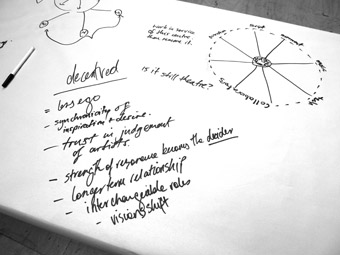 work in service
of this centre
then remove it.
is it still theatre?
Collaborators
deceived
= less ego
- synchronicity of
inspiration + desire.
- trust in judgement
of artists.
- strength of response becomes the decider
- longer term relationship
- interchangeable roles
- visions shift